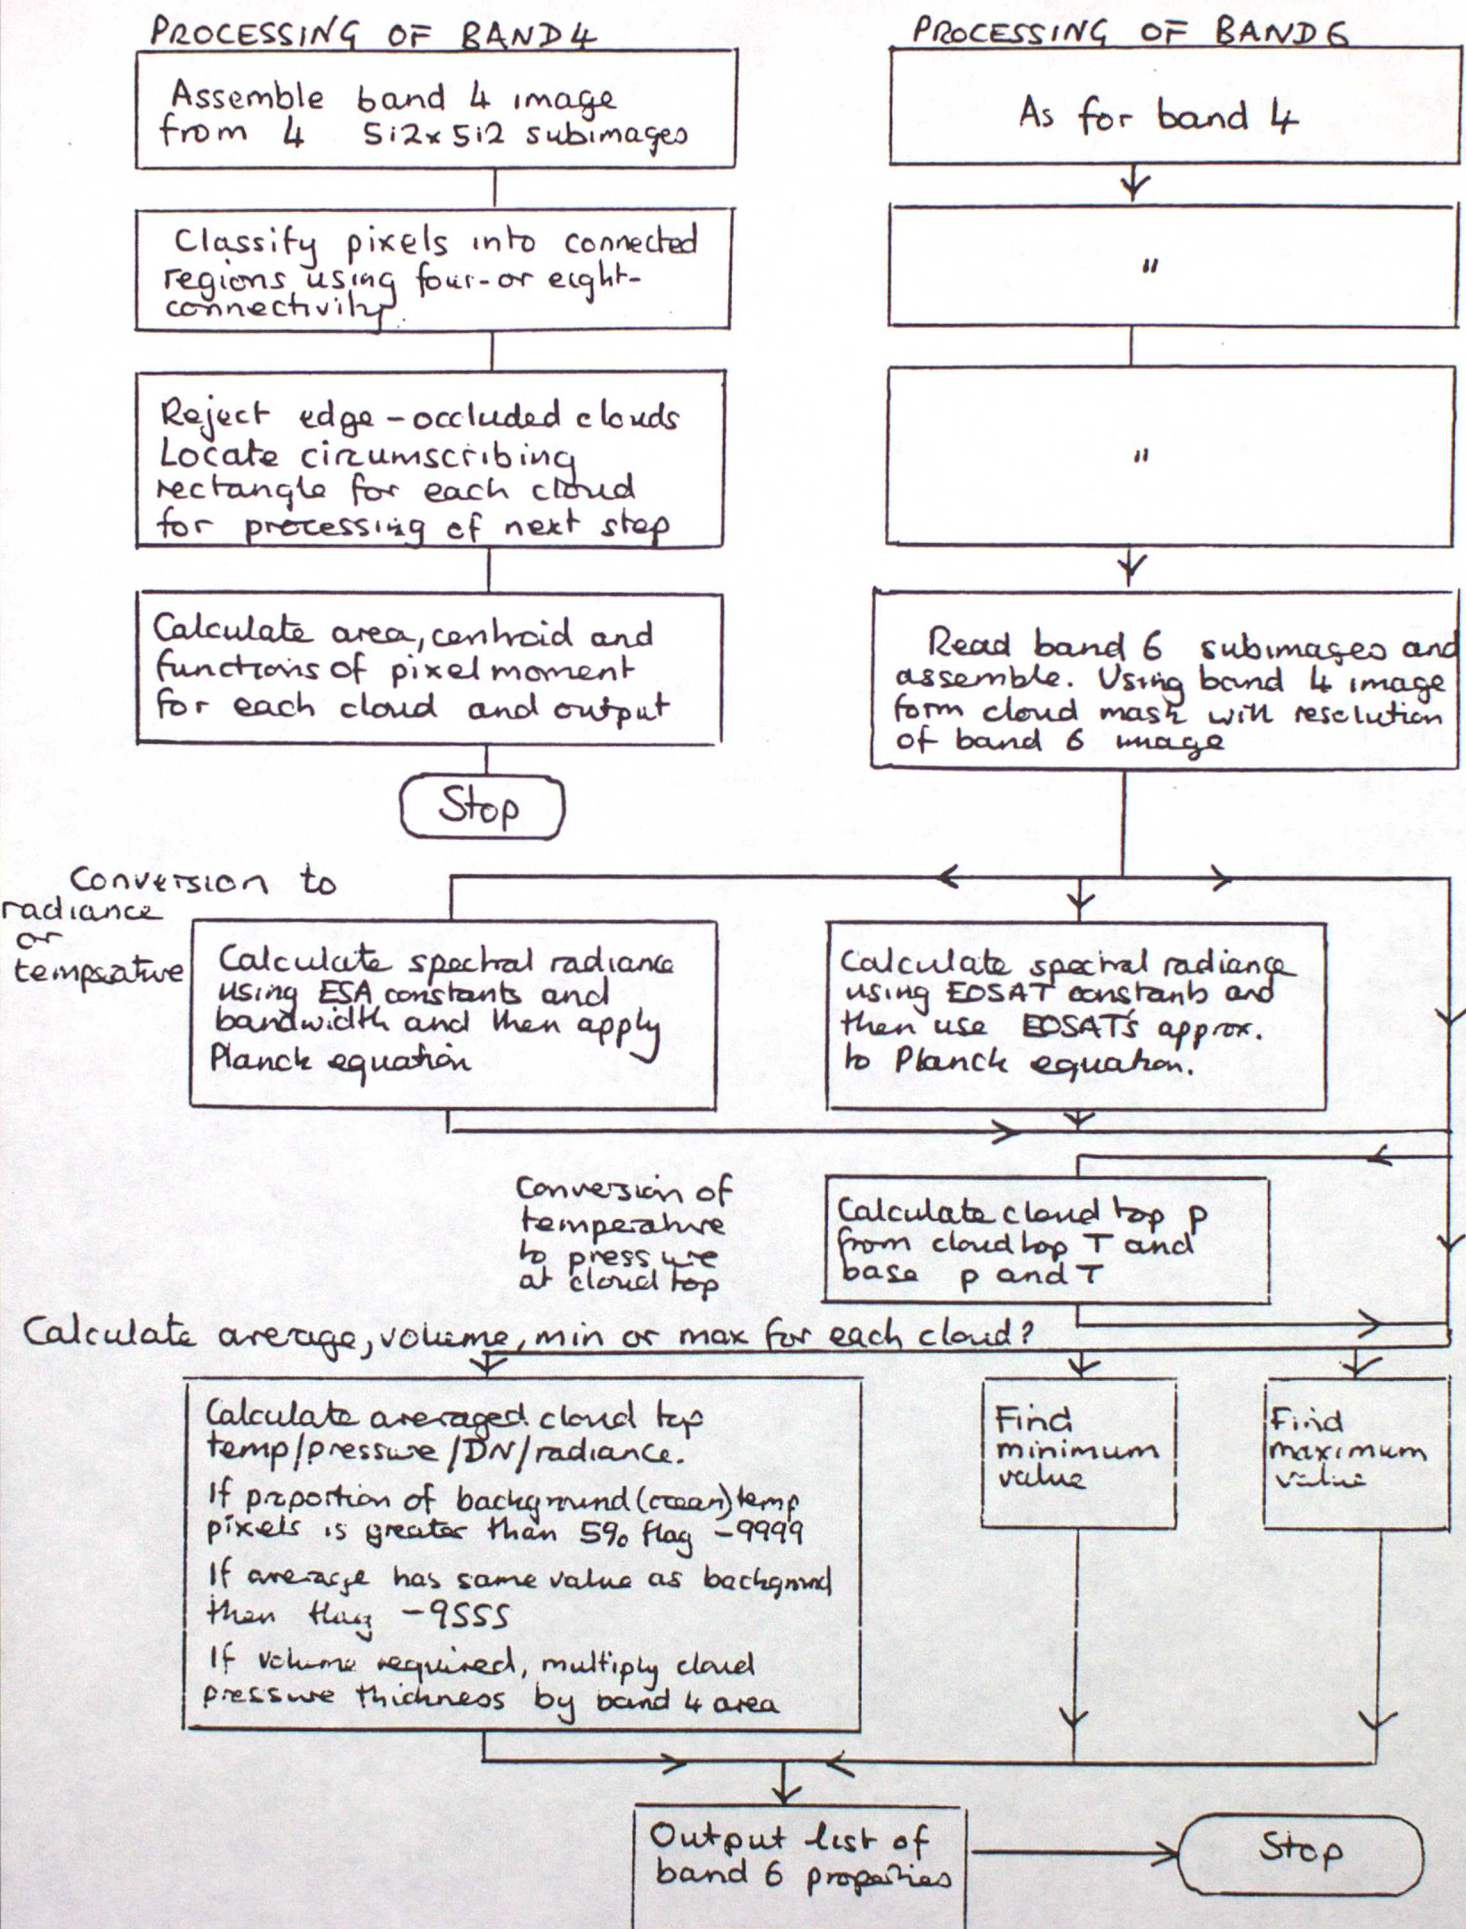 PROCESSING OF BAND 4
Assemble band 4 image
from 4 512x512 subimages
Classify pixels into connected
regions using four- or eight-
connectivity.
Reject edge-occluded clouds
Locate circumscribing
rectangle for each cloud
for processing of next step
Calculate area, centroid and
functions of pixel moment
for each cloud and output
Stop
PROCESSING OF BAND 6
As for band 4
"
"
Read band 6 subimages and
assemble. Using band 4 image
form cloud mask with resolution
of band 6 image
Conversion to
radiance
or
temperature
Calculate spectral radiance
using ESA constants and
bandwidth and then apply
Planck equation
Calculate spectral radiance
using EOSAT constants and
then use EOSAT's approx.
to Planck equation.
Conversion of
temperature
to pressure
at cloud top
Calculate cloud top p
from cloud top T and
base p and T
Calculate average, volume, min or max for each cloud?
Calculate averaged cloud top
temp/pressure/DN/radiance.
If proportion of background (ocean) temp
pixels is greater than 5% flag -9999
If average has same value as background
then flag -9555
If volume required, multiply cloud
pressure thickness by band 4 area
Find
minimum
value
Find
maximum
value
Output list of
band 6 properties
Stop